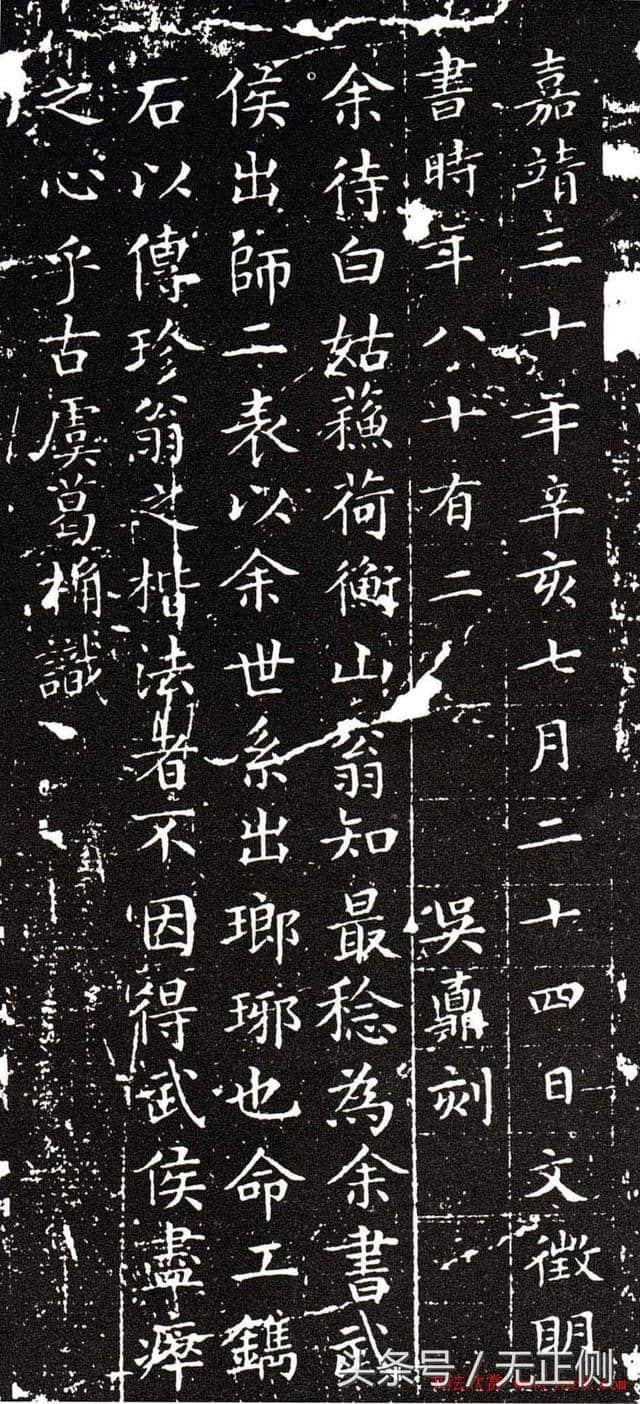 嘉靖三十年辛亥七月二十四日文徵明
書時年八十有二 吳鼒刻
余待白姑蘓荷衡山翁知最稔為余書武
侯出師二表以余世系出瑯琊也命工鐫
石以傳珍翁之楷法者不因得武侯盡瘁
之心乎古虞葛桷識
头条号 / 无正侧